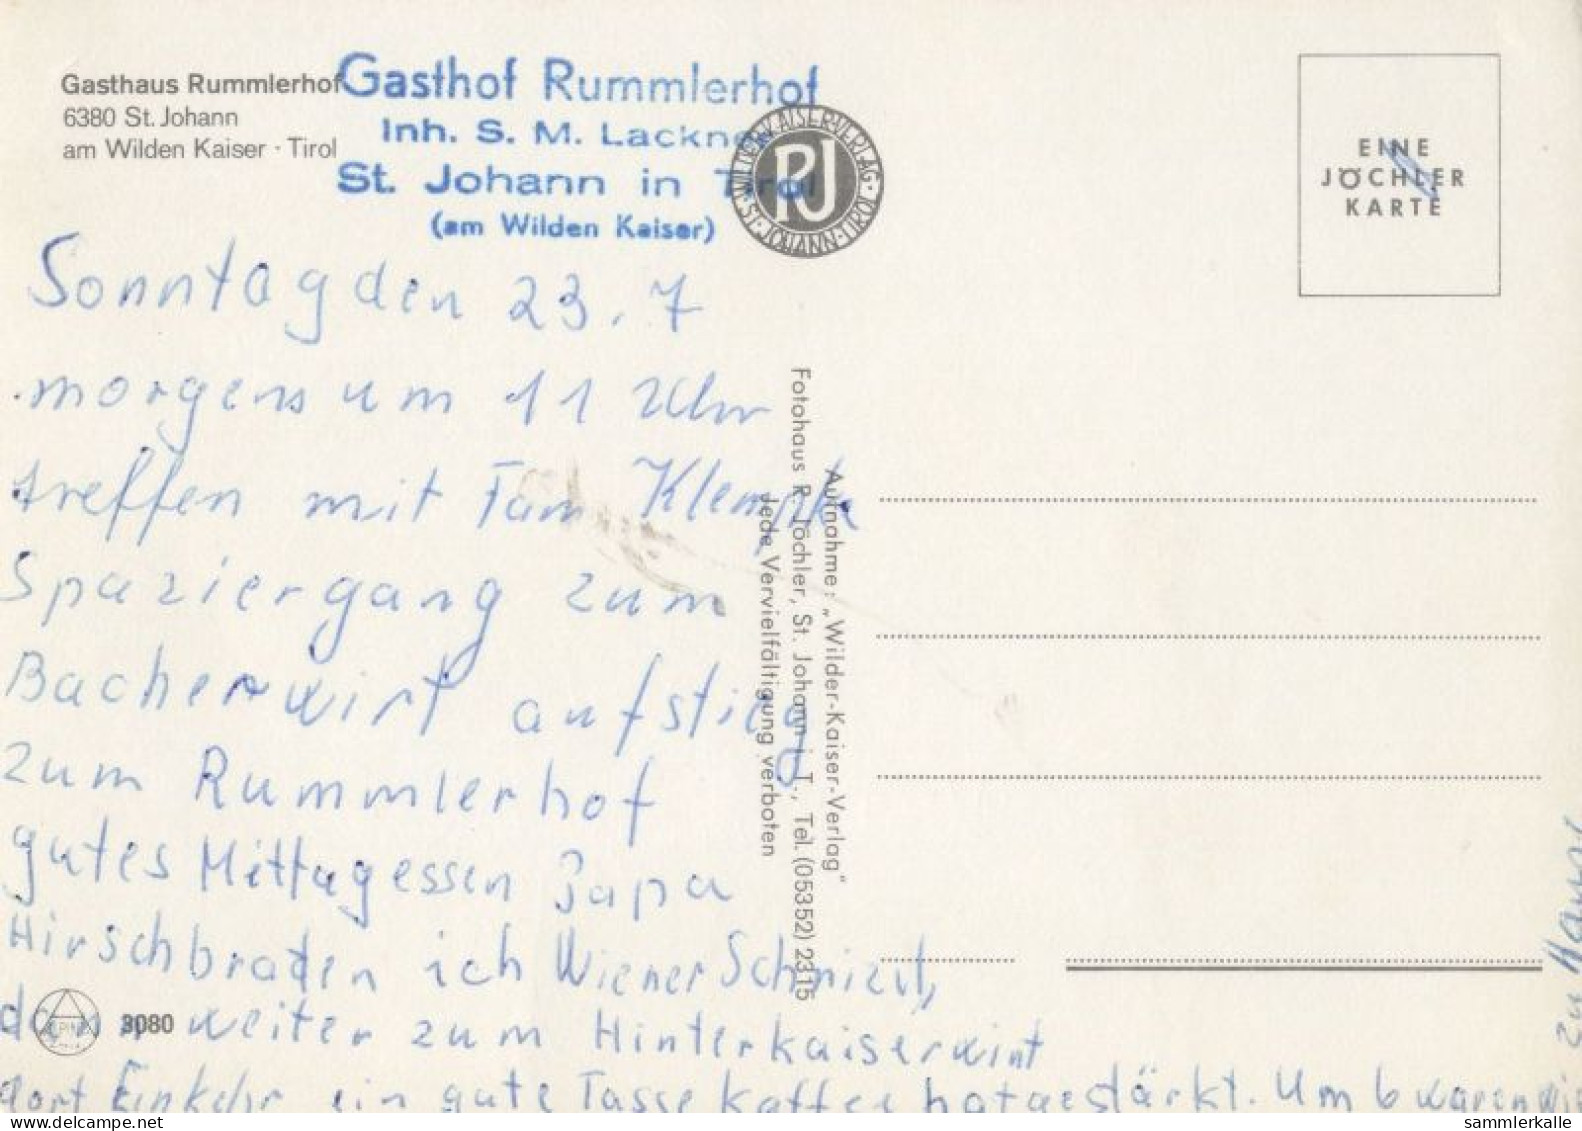 Gasthaus Rummlerhof
6380 St. Johann
am Wilden Kaiser · Tirol
Gasthof Rummlerhof
Inh. S. M. Lackner
St. Johann in Tirol
(am Wilden Kaiser)
WILDER-KAISER-VERLAG · ST. JOHANN-TIROL ·
RJ
EINE
JÖCHLER
KARTE
Sonntag den 23. 7
morgens um 11 Uhr
treffen mit Fam
Spaziergang zum
Bacherwirt aufstieg
zum Rummlerhof
gutes Mittagessen Papa
Hirschbraten ich Wiener Schnizel,
dann weiter zum Hinterkaiserwirt
dort Einkehr ein gute Tasse Kaffee hat gestärkt. Um 6 waren wir
zu Hause
Aufnahme: „Wilder-Kaiser-Verlag"
Fotohaus R. Jöchler, St. Johann i. T., Tel. (05352) 2315
Jede Vervielfältigung verboten
3080
www.delcampe.net
sammlerkalle